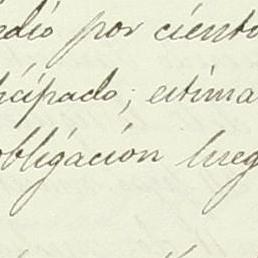 edio por ciento
icipado; estima
obligación lueg